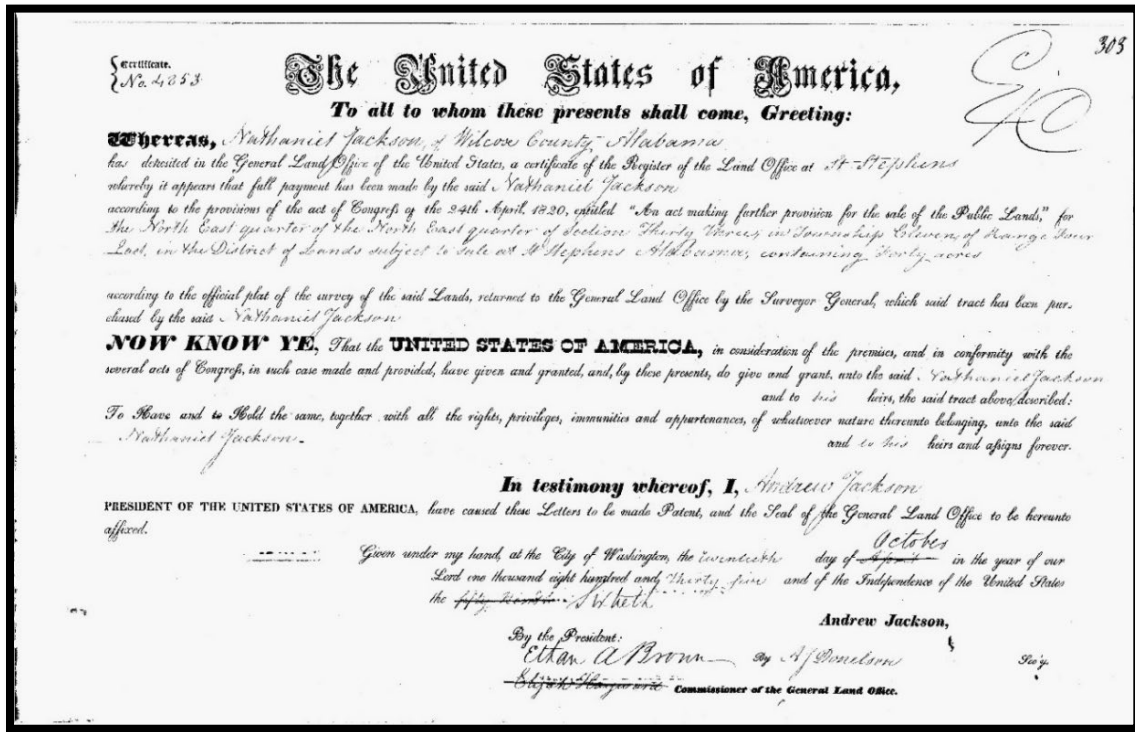 303
Certificate.
No. 4853
The United States of America,
To all to whom these presents shall come, Greeting:
Whereas, Nathaniel Jackson, of Wilcox County Alabama
has deposited in the General Land Office of the United States, a certificate of the Register of the Land Office at St Stephens
whereby it appears that full payment has been made by the said Nathaniel Jackson
according to the provisions of the act of Congress of the 24th April, 1820, entitled "An act making further provision for the sale of the Public Lands," for
the North East quarter of the North East quarter of Section Thirty Three, in Township Eleven, of Range Four
East, in the District of Lands subject to sale at St Stephens Alabama, containing Forty acres
according to the official plat of the survey of the said Lands, returned to the General Land Office by the Surveyor General, which said tract has been pur-
chased by the said Nathaniel Jackson
NOW KNOW YE, That the UNITED STATES OF AMERICA, in consideration of the premises, and in conformity with the
several acts of Congress, in such case made and provided, have given and granted, and, by these presents, do give and grant, unto the said Nathaniel Jackson
and to his heirs, the said tract above described:
To Have and to Hold the same, together with all the rights, privileges, immunities and appurtenances, of whatsoever nature thereunto belonging, unto the said
Nathaniel Jackson - and to his heirs and assigns forever.
In testimony whereof, I, Andrew Jackson
PRESIDENT OF THE UNITED STATES OF AMERICA, have caused these Letters to be made Patent, and the Seal of the General Land Office to be hereunto
affixed.
October
Given under my hand, at the City of Washington, the twentieth day of April in the year of our
Lord one thousand eight hundred and thirty five and of the Independence of the United States
the fifty Sixtieth
Andrew Jackson,
By the President:
Ethan A Brown By A J Donelson Sec'y.
Elijah Hayward Commissioner of the General Land Office.